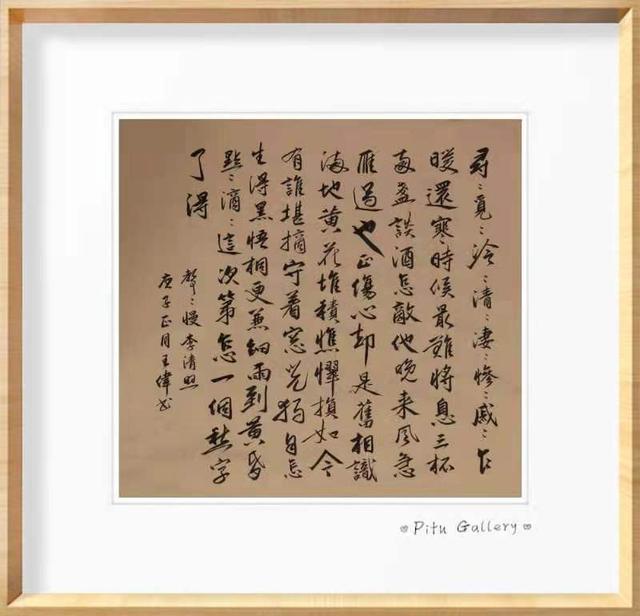 尋:覓:冷:清:淒:慘:戚:乍
暖還寒時候最難將息三杯
两盞談酒怎敵他晚来風急
雁過也正傷心却是舊相識
满地黄花堆積憔悴損如今
有誰堪摘守着窓兒獨自怎
生得黑悟桐更兼細雨到黄昏
點:滴:這次第怎一個愁字
了得
聲:慢李清照
庚子正月王偉书
Pitu Gallery